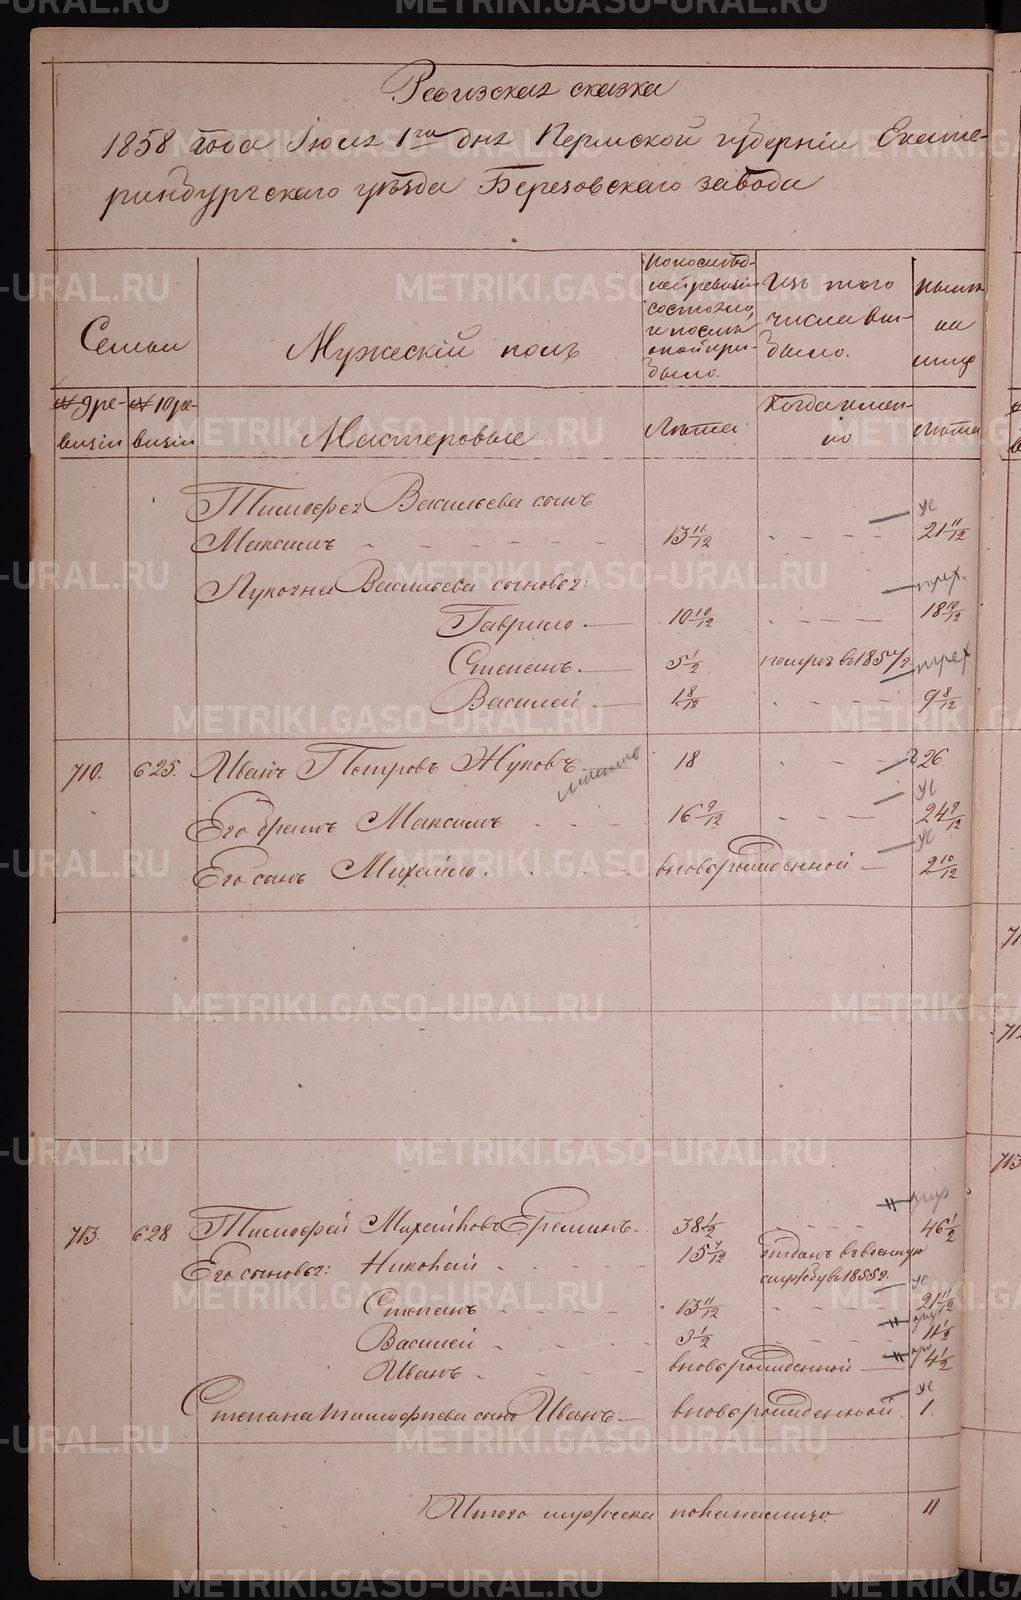 Ревизская сказка
1858 года Июля 1го дня Пермской губерніи Екате-
ринбургскаго уѣзда Березовскаго завода
Семьи
Мужескій полъ
По послѣд-
ней ревизіи
состояло
и послѣ
оной при-
было.
Изъ того
числа вы-
было.
Нынѣ
на
лицо
№ 9 ре-
визіи
№ 10 ре-
визіи
Мастеровые
Лѣта
Когда имен-
но
Лѣта
Тимофея Васильева сынъ
Максимъ 13 11/12 21 11/12
Лукояна Васильева сыновья:
Гаврило 10 10/12 18 10/12
Степанъ 5 1/2 померъ въ 1854 г.
Василей 1 8/12 9 8/12
710. 625. Иванъ Петровъ Жуковъ 18 26
Его братъ Максимъ 16 9/12 24 9/12
Его сынъ Михайло вновьрожденной 2 10/12
713. 628 Тимофей Михайловъ Ереминъ 38 1/2 46 1/2
Его сыновья: Николай 15 7/12 отданъ въ военную
службу въ 1855 г.
Степанъ 13 11/12 21 11/12
Василей 3 1/2 11 1/2
Иванъ вновьрожденной 4 1/2
Степана Тимофѣева сынъ Иванъ вновьрожденной 1.
Итого мужеска пола налицо 11
METRIKI.GASO-URAL.RU